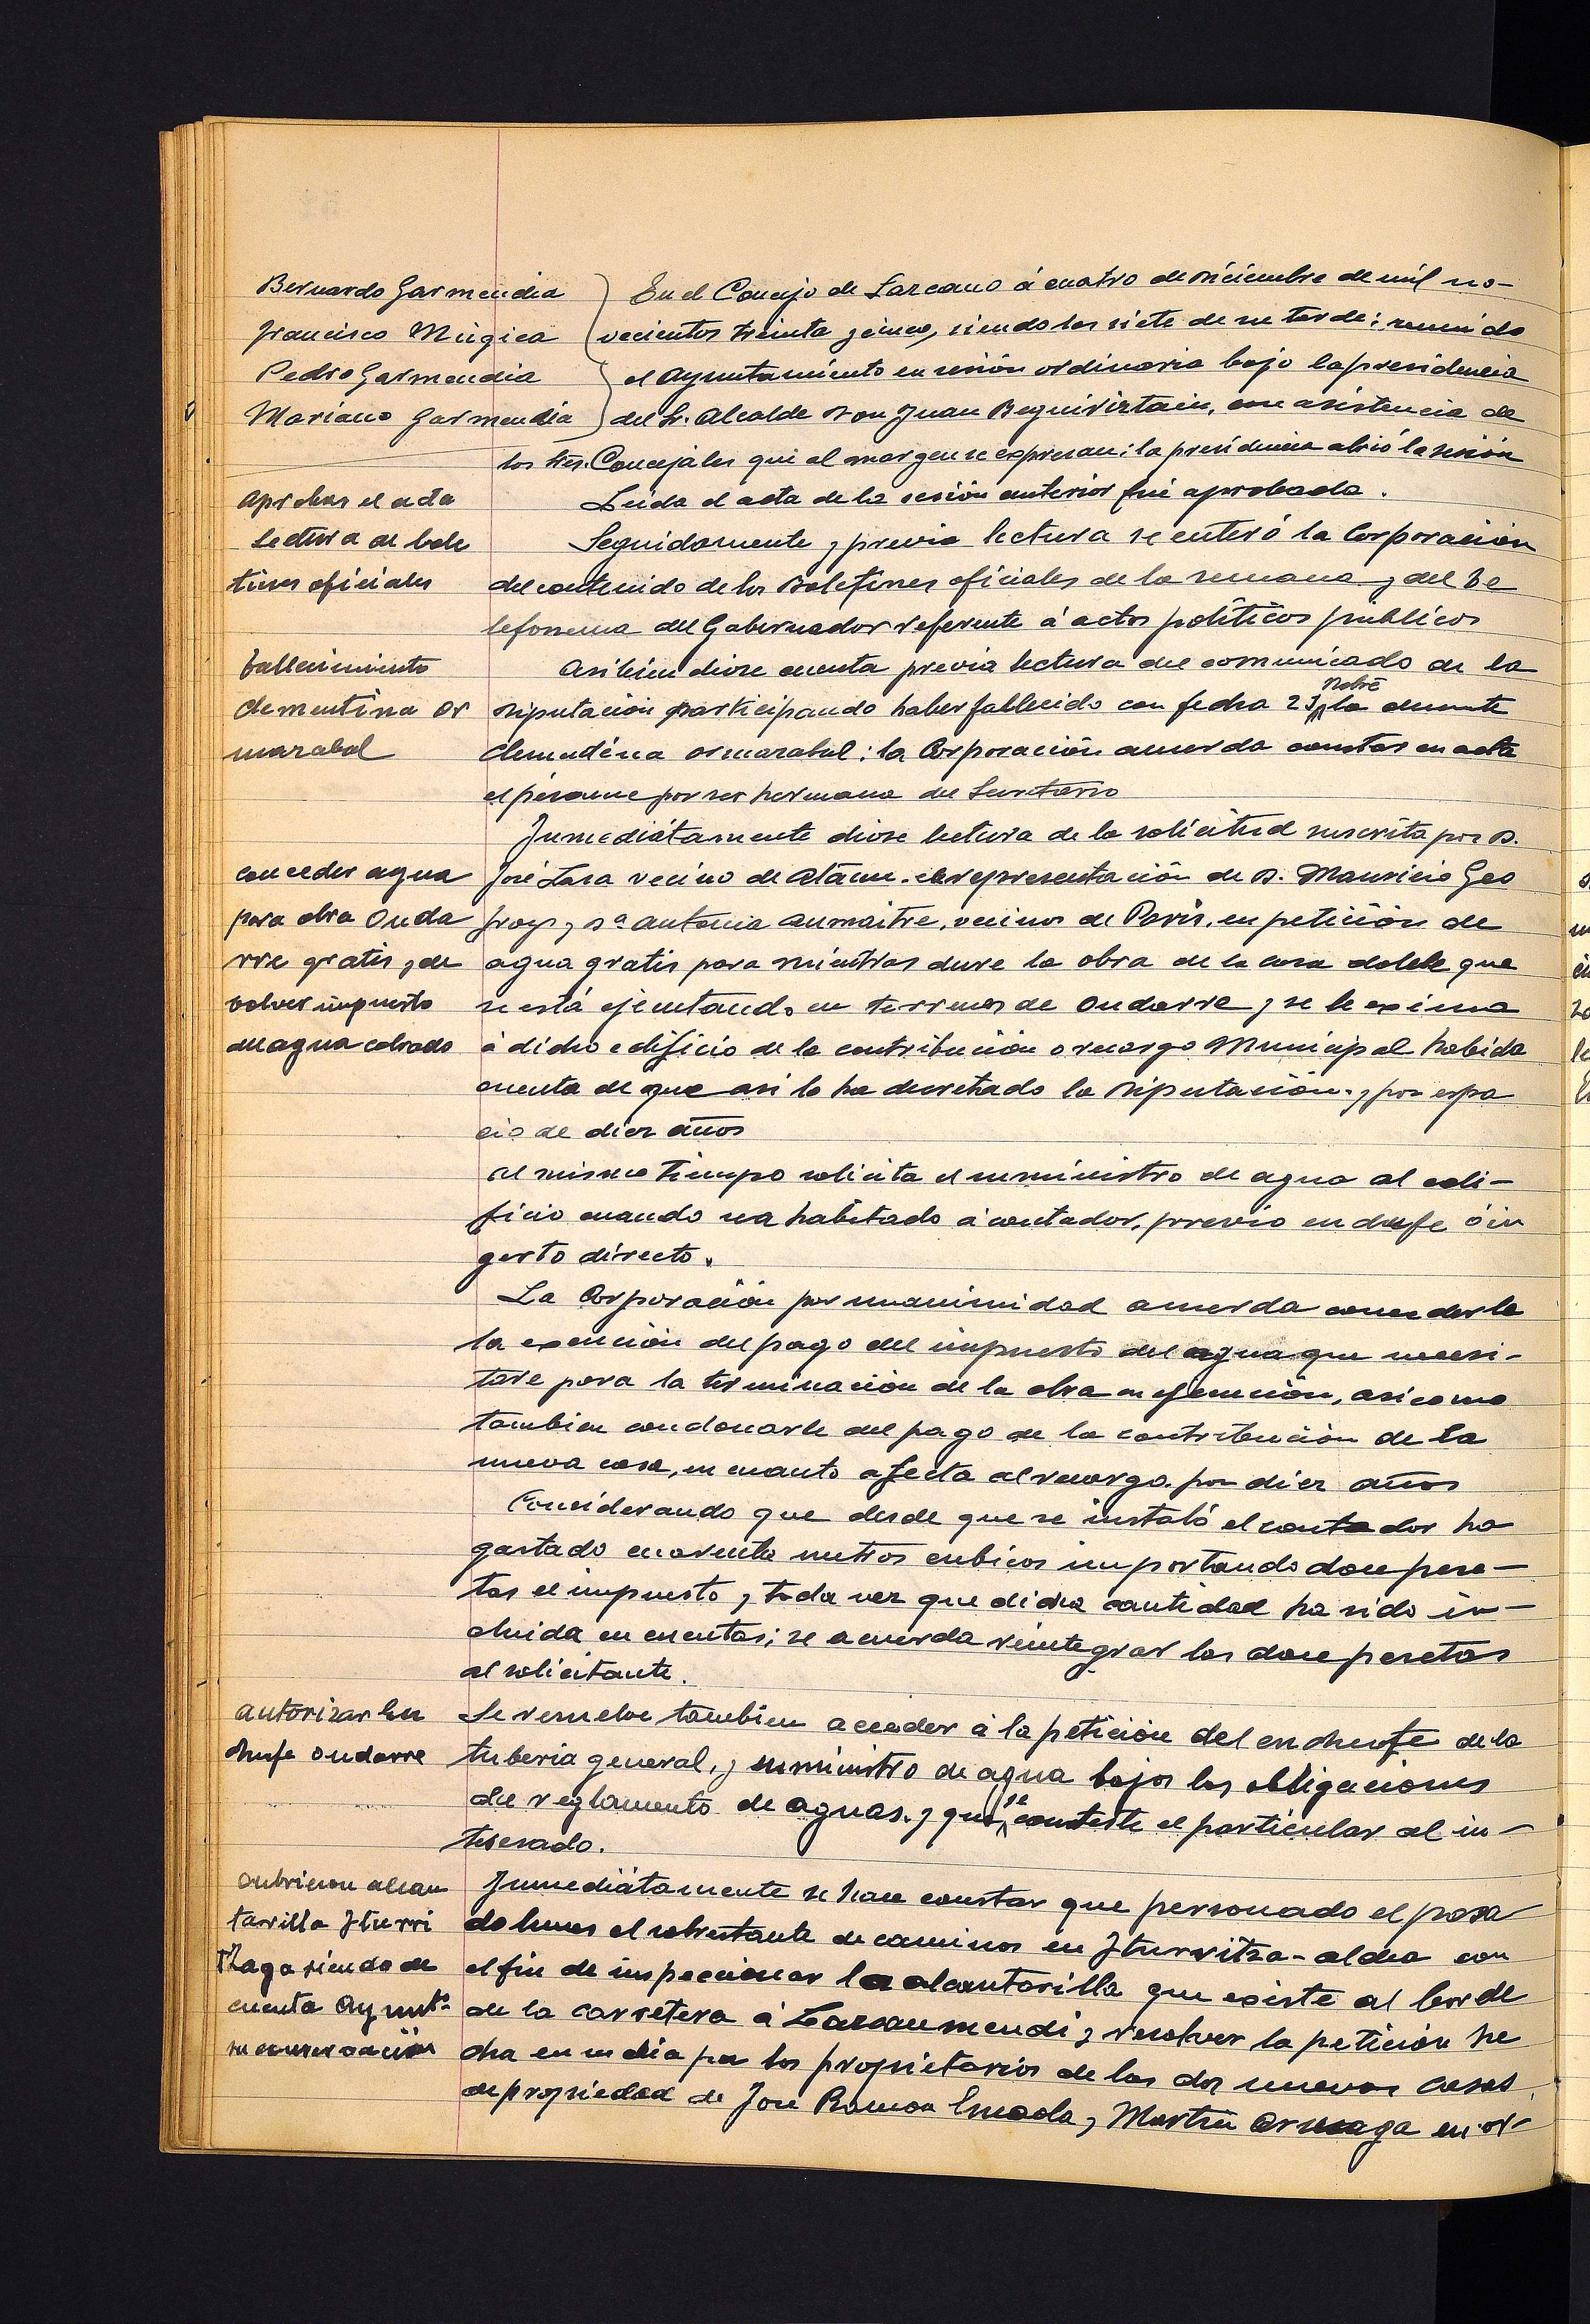 Bernardo Garmendia
Francisco Múgica
Pedro Garmendia
Mariano Garmendia
En el Concejo de Lazcano á cuatro de Diciembre de mil no-
vecientos treinta y cinco, siendo las siete de su tarde: reunido
el Ayuntamiento en sesión ordinaria bajo la presidencia
del Sr. Alcalde Don Juan Beguiristain, con asistencia de
los tres. Concejales que al margen se expresan: la presidencia abrió la sesión
Aprobar el acta
Leida el acta de la sesión anterior fué aprobada.
Lectura de bole
tines oficiales
Seguidamente y previa lectura se enteró la Corporación
del contenido de los Boletines oficiales de la semana y del te
lefonema del Gobernador referente á actos políticos públicos
Fallecimiento
Clementina Or
marabal
Asibien diose cuenta previa lectura del comunicado de la
Diputación participando haber fallecido con fecha 23 Nobre la demente
Clementina Ormarabal: la Corporación acuerda constar en acta
el pésame por ser hermana del Secretario
conceder agua
para obra Onda
rre gratis y de
volver impuesto
del agua cobrado
Inmediatamente diose lectura de la solicitud suscrita por D.
José Lasa vecino de Ataun. en representación de D. Mauricio Geo
froys y Dª Antonia Aumaitre, vecinos de París, en petición de
agua gratis para mientras dure la obra de la casa doble que
se está ejecutando en terrenos de Ondarre y se le exima
á dicho edificio de la contribución o recargo Municipal habida
cuenta de que asi lo ha decretado la Diputación. y por espa
cio de diez años
Al mismo tiempo solicita el suministro de agua al edi-
ficio cuando sea habitado á contador, previo enchufe ó in
gerto directo.
La Corporación por unanimidad acuerda concederle
la exención del pago del impuesto del agua que necesi-
tare para la terminación de la obra en ejecución, asi como
tambien condonarle del pago de la contribución de la
nueva casa, en cuanto afecta al recargo. por diez años
Considerando que desde que se instaló el contador ha
gastado cuarenta metros cubicos importando doce pese-
tas el impuesto y toda vez que dicha cantidad ha sido in-
cluida en cuentas; se acuerda reintegrar las doce pesetas
al solicitante.
Autorizar En
chufe Ondarre
Se resuelve tambien acceder á la petición del enchufe de la
tuberia general, y suministro de agua bajos las obligaciones
del reglamento de aguas. y que se conteste el particular al in-
teresado.
cubricion alcan
tarilla Iturri
tzaga siendo de
cuenta Ayunt.º
su conservación
Inmediatamente se hace constar que personado el pasa
do lunes el sobrestante de caminos en Iturritza-aldea con
el fin de inspeccionar la alcantarilla que existe al borde
de la carretera á Lazcaumendi y resolver la petición he
cha en su dia por los propietarios de las dos nuevas casas
de propiedad de José Ramon y Martin en or